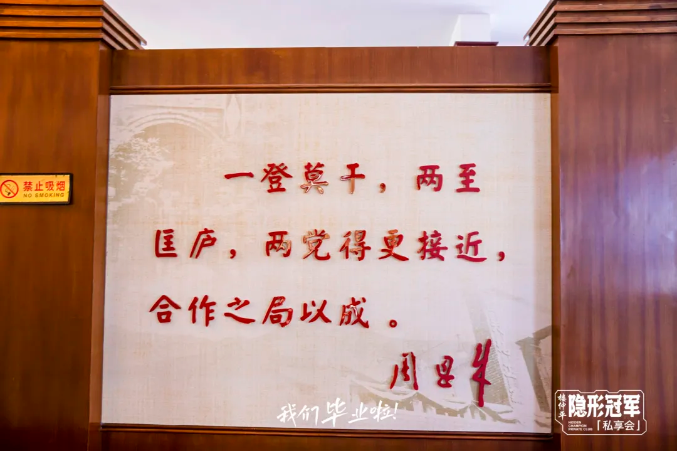 禁止吸烟
NO SMOKING
一登莫干，两至
匡庐，两党得更接近，
合作之局以成。
周恩来
我们毕业啦！
杨仲华
隐形冠军
HIDDEN CHAMPION
PRIVATE CLUB
「私享会」